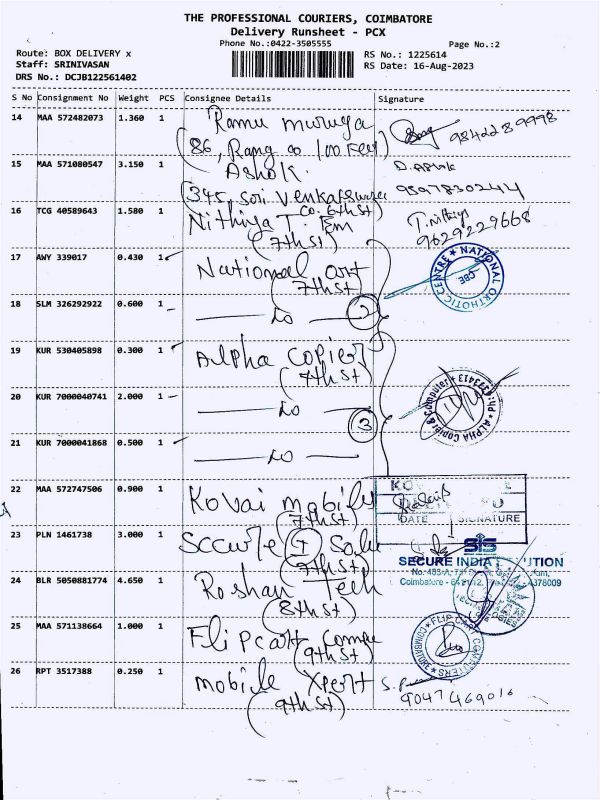 THE PROFESSIONAL COURIERS, COIMBATORE
Delivery Runsheet - PCX
Phone No.:0422-3505555
Page No.:2
Route: BOX DELIVERY x
Staff: SRINIVASAN
DRS No.: DCJB122561402
RS No.: 1225614
RS Date: 16-Aug-2023
S No Consignment No Weight PCS Consignee Details Signature
14 MAA 572482073 1.360 1 Ramu muruga
(86, Rang 100 Feet)
9842289998
15 MAA 571080547 3.150 1 Ashok.
(345, Sri Venkateswara
Co. 6th St)
D. Ashok
9597830244
16 TCG 40589643 1.580 1 Nithiya T. Em
(7th St)
T. nithiya
9629229668
17 AWY 339017 0.430 1 National art
(7th St)
NATIONAL ORTHOTIC CENTRE
CBE
18 SLM 326292922 0.600 1 — do — 2
19 KUR 530405898 0.300 1 Alpha Copier
(7th St)
20 KUR 7000040741 2.000 1 — do — 3
ALPHA COPIER
21 KUR 7000041868 0.500 1 — do —
22 MAA 572747506 0.900 1 Kovai mobile
(7th St)
DATE SIGNATURE
23 PLN 1461738 3.000 1 Secure I Solu
(7th St)
SIS
SECURE INDIA
Coimbatore
24 BLR 5050881774 4.650 1 Roshan Tech
(8th St)
25 MAA 571138664 1.000 1 Flipcart Compu
(9th St)
FLIP CART COMPUTERS
COIMBATORE
26 RPT 3517388 0.250 1 mobile Xpert
(9th St)
9047469016